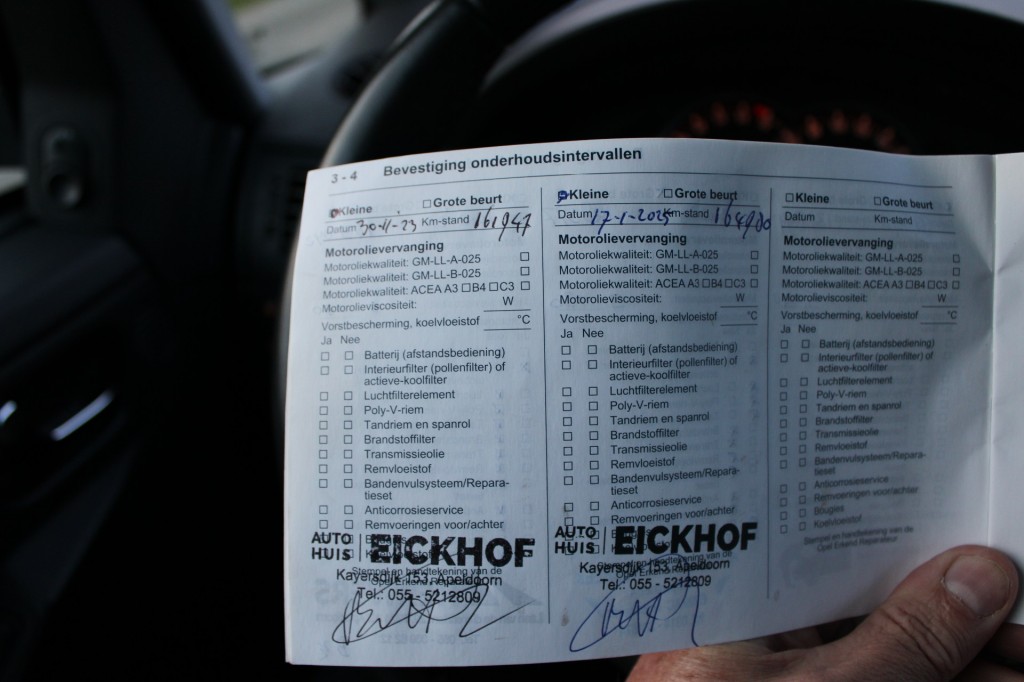 3 - 4 Bevestiging onderhoudsintervallen
Kleine ☐ Grote beurt
Datum 30-11-23 Km-stand 161947
Motorolievervanging
Motoroliekwaliteit: GM-LL-A-025 ☐
Motoroliekwaliteit: GM-LL-B-025 ☐
Motoroliekwaliteit: ACEA A3 ☐B4 ☐C3 ☐
Motorolieviscositeit: W
Vorstbescherming, koelvloeistof °C
Ja Nee
☐ ☐ Batterij (afstandsbediening)
☐ ☐ Interieurfilter (pollenfilter) of
actieve-koolfilter
☐ ☐ Luchtfilterelement
☐ ☐ Poly-V-riem
☐ ☐ Tandriem en spanrol
☐ ☐ Brandstoffilter
☐ ☐ Transmissieolie
☐ ☐ Remvloeistof
☐ ☐ Bandenvulsysteem/Repara-
tieset
☐ ☐ Anticorrosieservice
☐ ☐ Remvoeringen voor/achter
AUTO HUIS EICKHOF
Stempel en handtekening van de
Kayersdijk 153, Apeldoorn
Opel Erkend Reparateur
Tel.: 055 - 5212809
Kleine ☐ Grote beurt
Datum 17-1-2025 Km-stand
Motorolievervanging
Motoroliekwaliteit: GM-LL-A-025 ☐
Motoroliekwaliteit: GM-LL-B-025 ☐
Motoroliekwaliteit: ACEA A3 ☐B4 ☐C3 ☐
Motorolieviscositeit: W
Vorstbescherming, koelvloeistof °C
Ja Nee
☐ ☐ Batterij (afstandsbediening)
☐ ☐ Interieurfilter (pollenfilter) of
actieve-koolfilter
☐ ☐ Luchtfilterelement
☐ ☐ Poly-V-riem
☐ ☐ Tandriem en spanrol
☐ ☐ Brandstoffilter
☐ ☐ Transmissieolie
☐ ☐ Remvloeistof
☐ ☐ Bandenvulsysteem/Repara-
tieset
☐ ☐ Anticorrosieservice
☐ ☐ Remvoeringen voor/achter
AUTO HUIS EICKHOF
Kayersdijk 153, Apeldoorn
Tel.: 055 - 5212809
☐ Kleine ☐ Grote beurt
Datum Km-stand
Motorolievervanging
Motoroliekwaliteit: GM-LL-A-025 ☐
Motoroliekwaliteit: GM-LL-B-025 ☐
Motoroliekwaliteit: ACEA A3 ☐B4 ☐C3 ☐
Motorolieviscositeit: W
Vorstbescherming, koelvloeistof °C
Ja Nee
☐ ☐ Batterij (afstandsbediening)
☐ ☐ Interieurfilter (pollenfilter) of
actieve-koolfilter
☐ ☐ Luchtfilterelement
☐ ☐ Poly-V-riem
☐ ☐ Tandriem en spanrol
☐ ☐ Brandstoffilter
☐ ☐ Transmissieolie
☐ ☐ Remvloeistof
☐ ☐ Bandenvulsysteem/Repara-
tieset
☐ ☐ Anticorrosieservice
☐ ☐ Remvoeringen voor/achter
☐ ☐ Bougies
☐ ☐ Koelvloeistof
Stempel en handtekening van de
Opel Erkend Reparateur